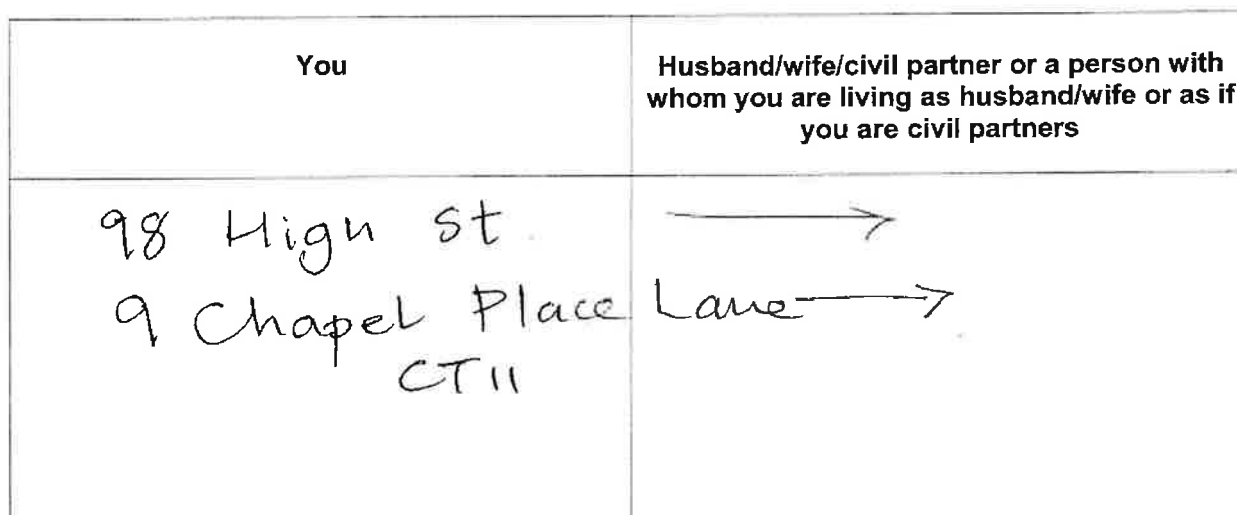 You
Husband/wife/civil partner or a person with
whom you are living as husband/wife or as if
you are civil partners
98 High St
9 Chapel Place Lane
CT11